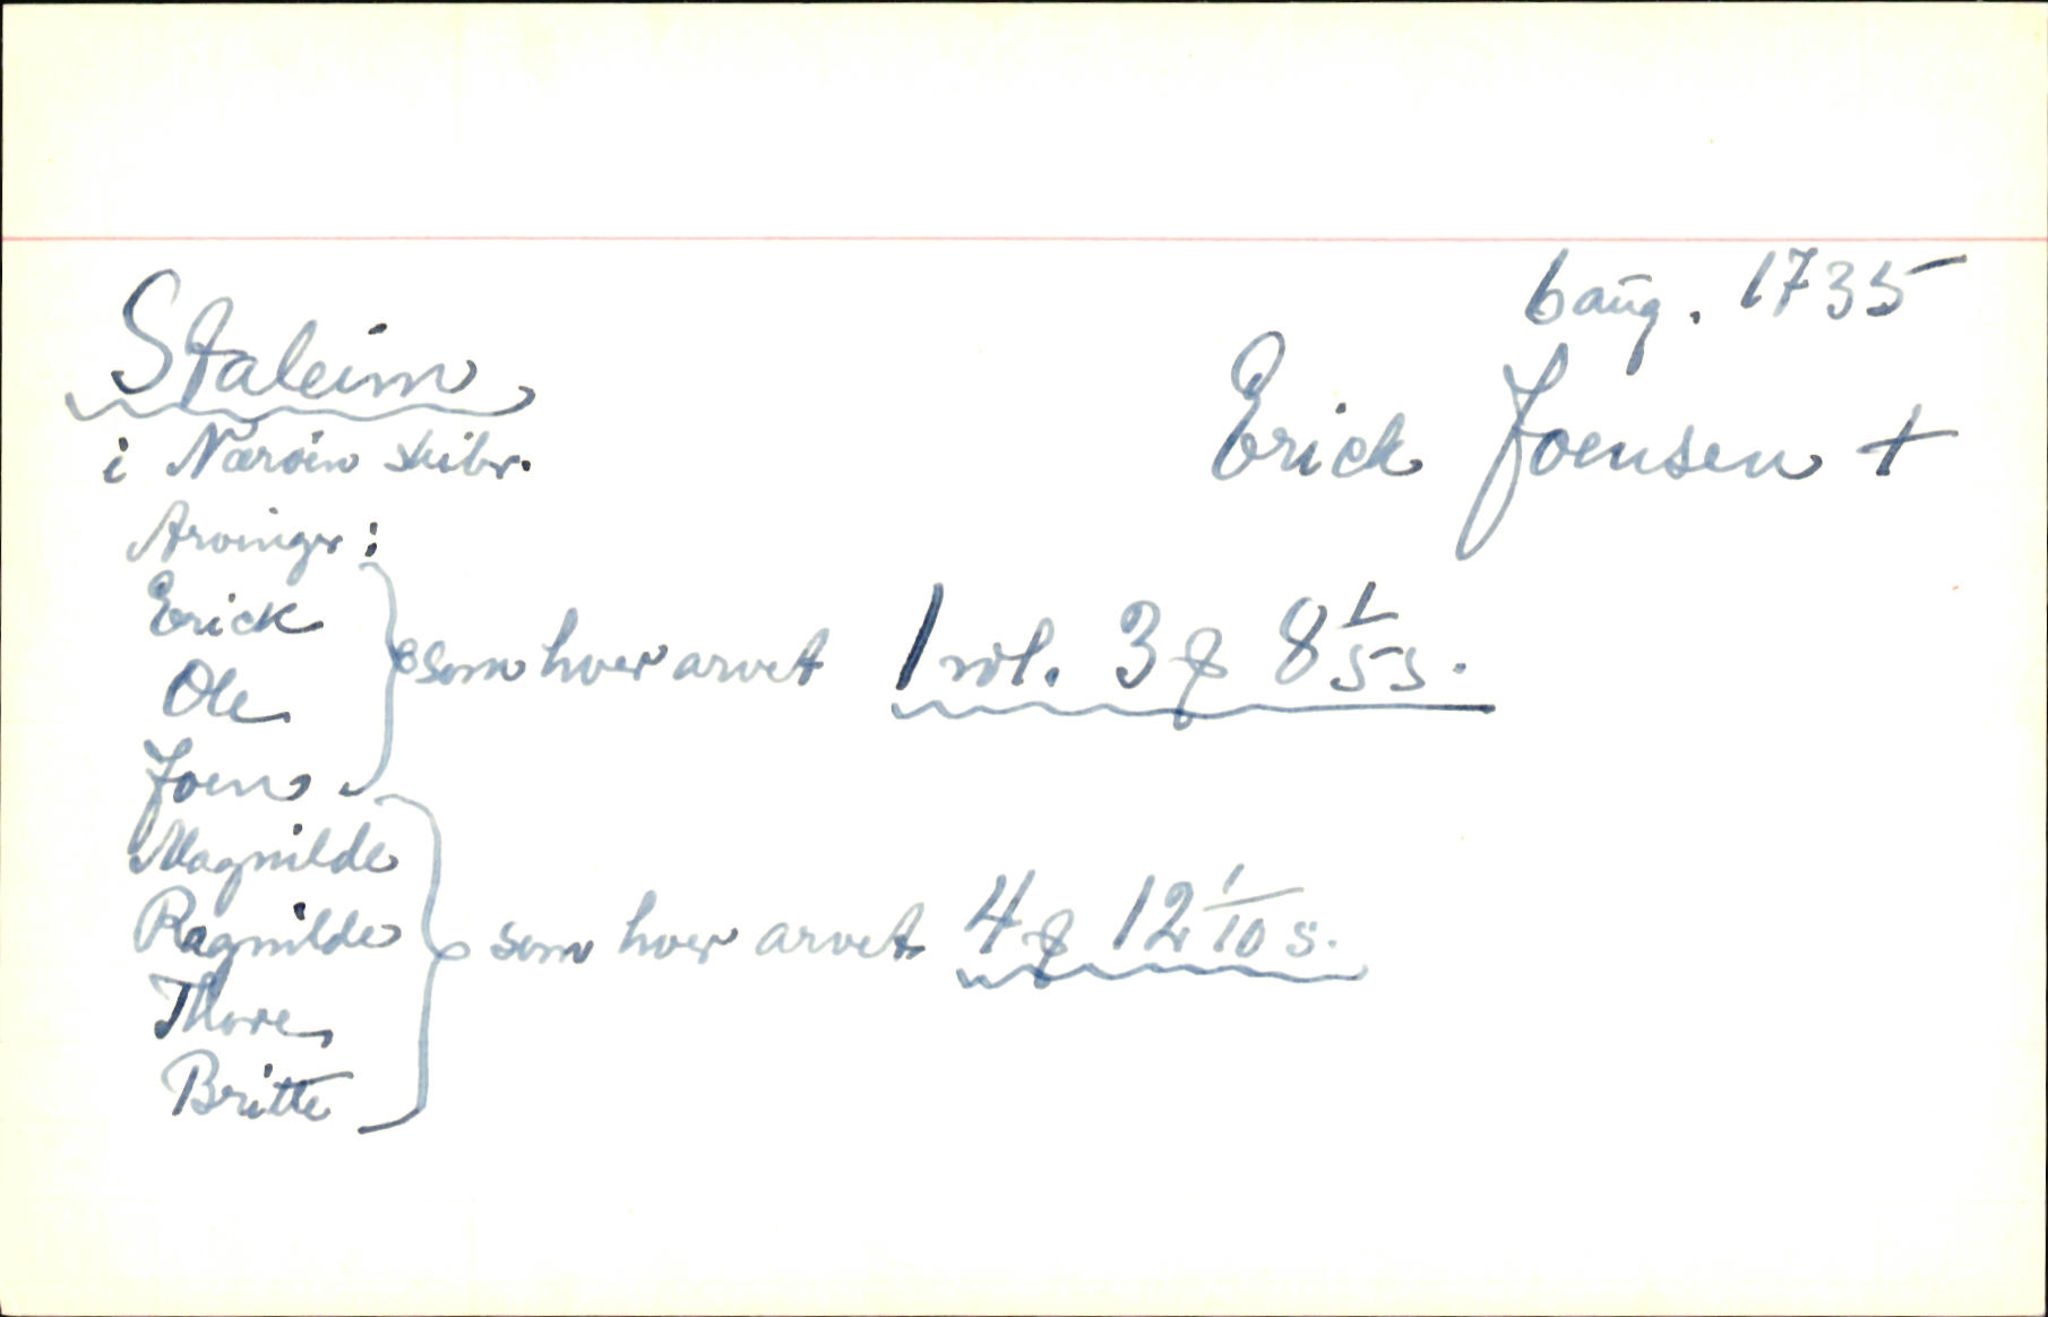 6 aug. 1735
Staleim
Erick Joensen +
i Nærøen skibr.
Arvinger:
Erick
Ole
Joen
som hver arvet 1 rdl. 3 ꝣ 8 1/5 s.
Magnilde
Ragnilde
Thore
Britte
som hver arvet 4 ꝣ 12 1/10 s.